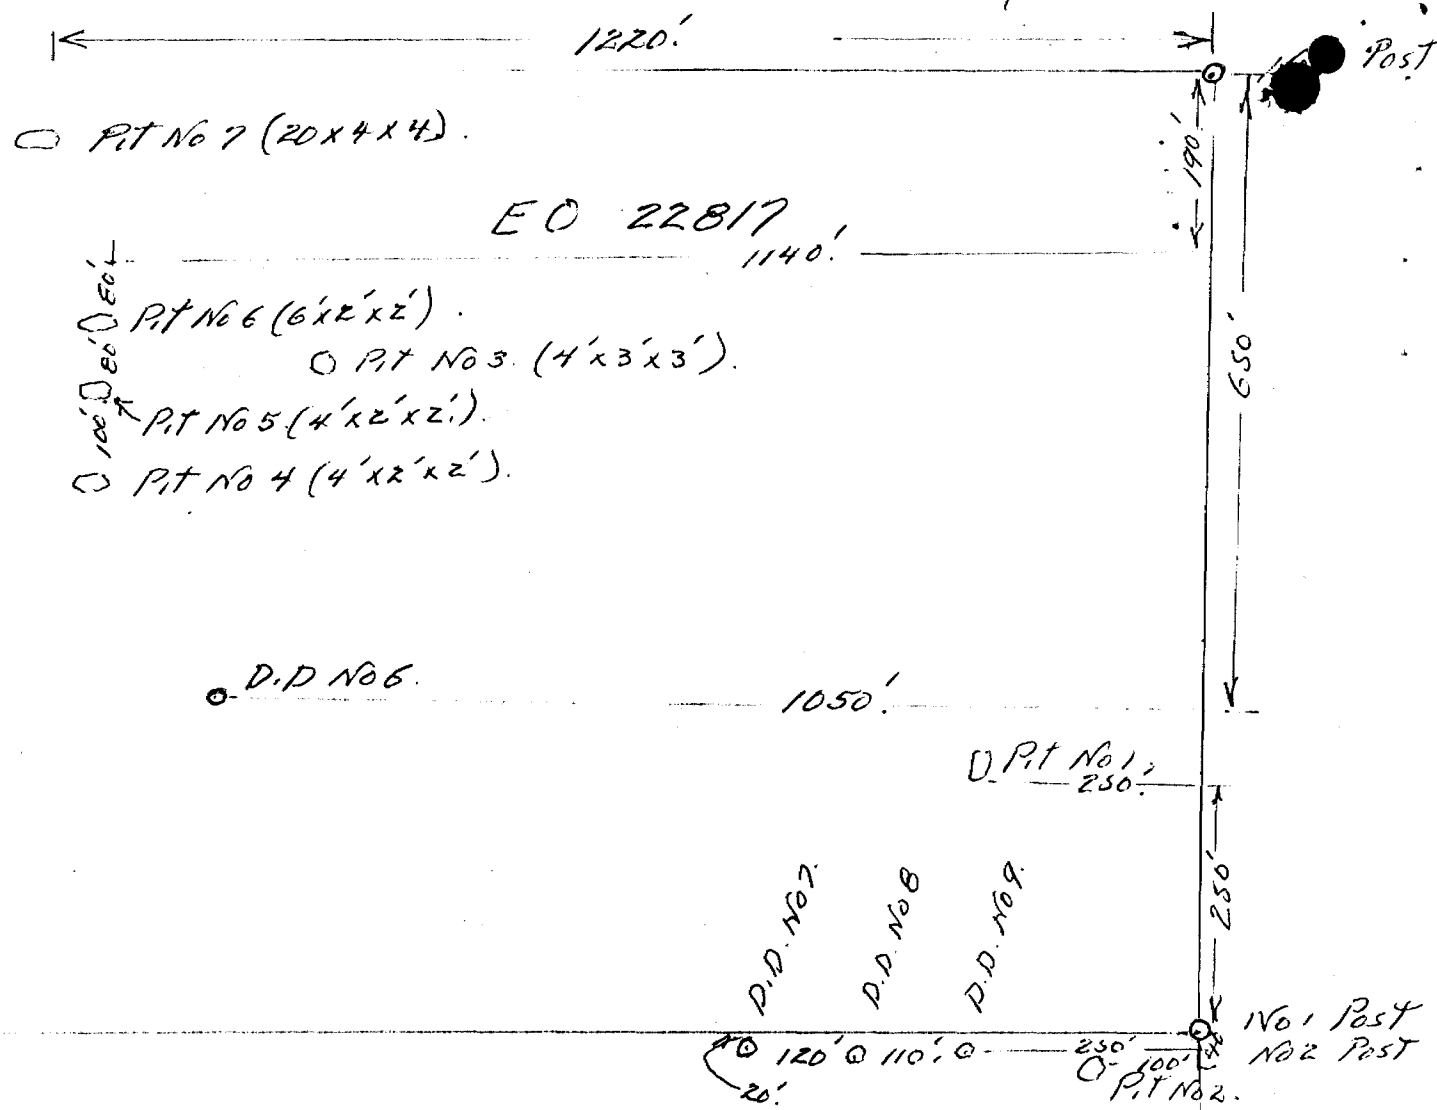 1220'.
Post
Pit No 7 (20 x 4 x 4).
190'.
EO 22817
1140'.
80'
Pit No 6 (6'x2'x2').
80'
Pit No 3. (4'x3'x3').
650'
Pit No 5 (4'x2'x2'.).
100'
Pit No 4 (4'x2'x2').
D.D No 6.
1050'.
Pit No 1.
250'.
250'
D.D. No 7.
D.D. No 8
D.D. No 9.
No 1 Post
No 2 Post
120' 110'. 250'
100'
20'.
Pit No 2.